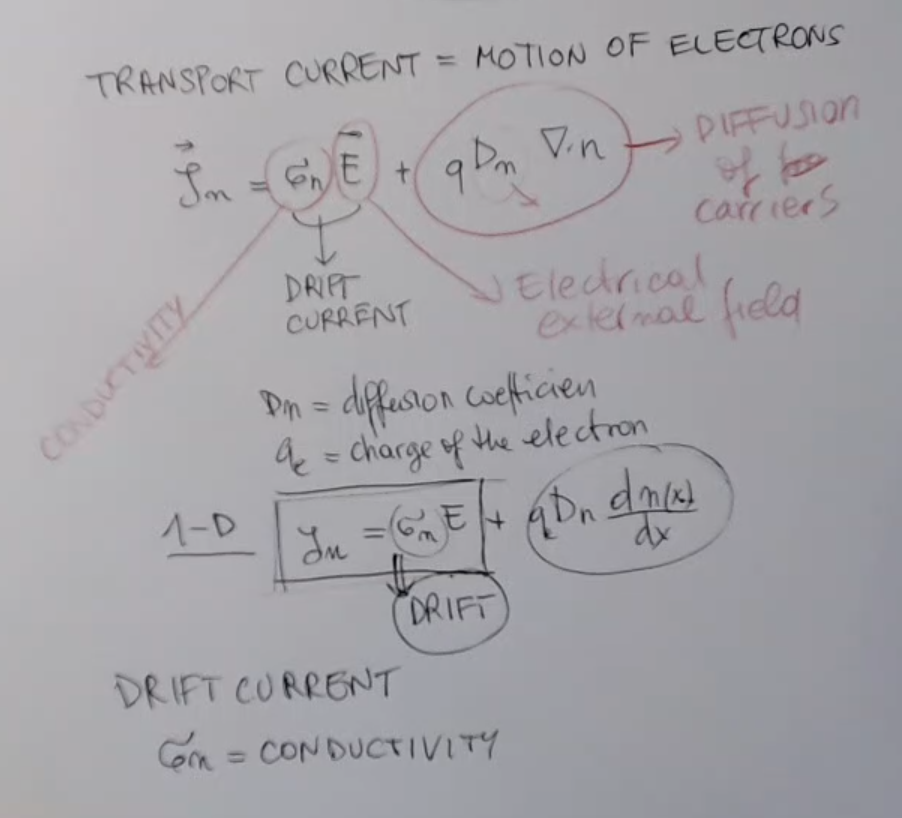 TRANSPORT CURRENT = MOTION OF ELECTRONS
J⃗n = σn E̅ + q Dn ∇·n → DIFFUSION
of
carriers
DRIFT
CURRENT
Electrical
external field
CONDUCTIVITY
Dn = diffusion coefficien
qe = charge of the electron
1-D Jn = σn E + q Dn dn(x)/dx
DRIFT
DRIFT CURRENT
σn = CONDUCTIVITY